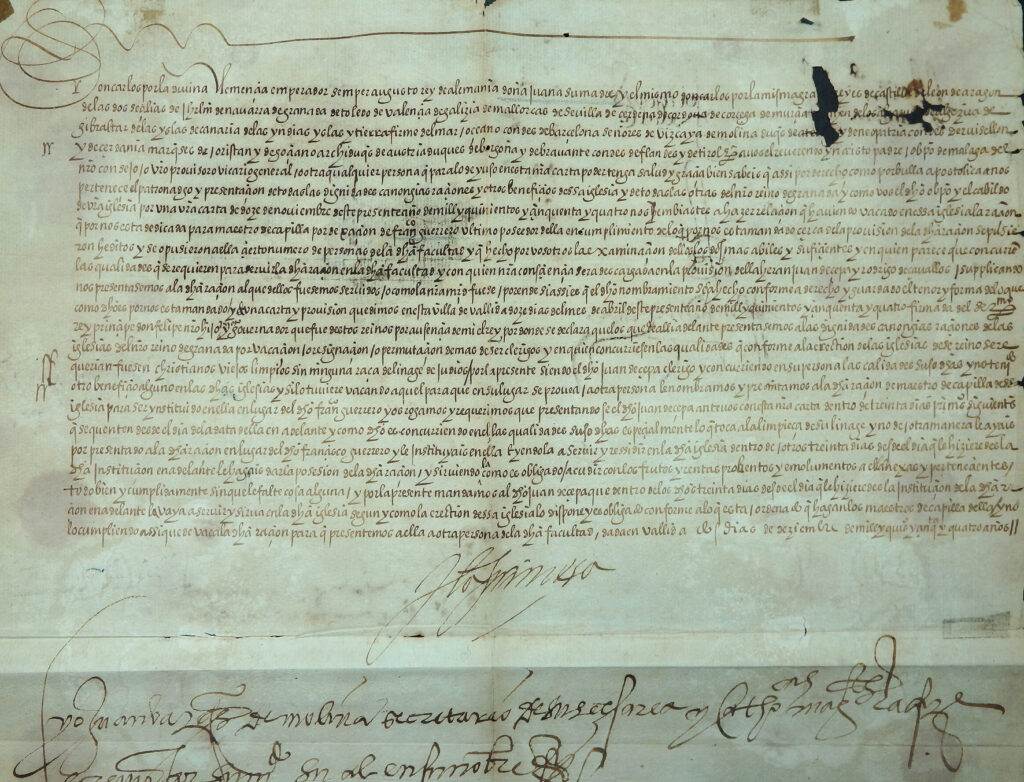 Don carlos por la divina clemençia emperador semper augusto rey de alemania doña juana su madre y el mismo don carlos por la misma graçia reyes de castilla de leon de aragon
de las dos seçilias de Jherusalen de navarra de granada de toledo de valençia de galizia de mallorcas de sevilla de cerdeña de cordova de corçega de murçia de jaen de los algarves de algezira de
gibraltar de las yslas de canaria de las yndias yslas y tierra firme del mar oceano condes de barcelona señores de vizcaya de molina duques de atenas y de neopatria condes de ruisellon
y de çerdania marqueses de oristan y de goçiano archiduques de austria duques de borgoña y de bravante condes de flandes y de tirol &c a vos el reverendo yn cristo padre obpo de malaga del
nro consejo /o vro provisor o vicario general /o otra qualquier persona que para lo de yuso en esta nra carta poder tenga salud y graçia bien sabeis q assi por derecho como por bulla apostolica a nos
perteneçe el patronadgo y presentaçion de todas las dignidades canongias raçiones y otros benefiçios dessa iglesia y de todas las otras del nro reino de granada y como vos el dho obpo y el cabildo
de vra iglesia por una vra carta de doze de noviembre deste presente año de mill y quinientos y çinquenta y quatro nos embiastes a hazer relaçion q haviendo vacado en essa iglesia la raçion
q por nos esta dedicada para maestro de capilla por dexaçion de franco guerrero ultimo posseedor della en cumplimiento de lo q por nos esta mandado çerca de la provision de la dha raçion se pusie
ron hedictos y se opusieron a ella çierto numero de personas de la dha facultad y q hecho por vosotros la examinaçion dellos los dos mas abiles y sufiçientes y en quien pareçe que concurren
las qualidades q se requieren para servir la dha raçion en la dha facultad y con quien nra consçiençia sera descargada en la provision della heran juan de çepa y rodrigo de cavallos / suplicando
nos presentasemos a la dha raçion al que dellos fuesemos servidos /o como la nra mrd fuese / por ende si assi es q el dho nombramiento se ha hecho conforme a derecho y guardado el tenor y forma de lo que
como dho es por nos esta mandado y de una carta y provision que dimos en esta villa de vallid a doze dias del mes de abril deste presente año de mill y quinientos y çinquenta y quatro firmada del smo
rey prinçipe don felipe nro hijo y nro governador que fue destos reinos por ausençia de mi el rey por donde se declara que los que de alli adelante presentasemos a las dignidades canongias raçiones de las
iglesias del nro reino de granada por vacaçion /o resignaçion /o permutaçion demas de ser clerigos y en quien concurriesen las qualidades q conforme a la erection de las iglesias dese reino se re
querian fuesen christianos viejos limpios sin ninguna raca de linage de judios por la presente siendo el dho juan de çepa clerigo y concurriendo en su persona las calidades suso dhas y no teniendo
otro benefiçio alguno en las dhas iglesias y si lo tuviere vacando aquel para que en su lugar se provea a otra persona le nombramos y presentamos a la dha raçion de maestro de capilla dessa
iglesia para ser ynstituido en ella en lugar del dho franco guerrero y os rogamos y requerimos que presentando se el dho juan de çepa ante vos con esta nra carta dentro de treinta dias primos siguientes
q se quenten desde el dia de la data della en adelante y como dho es concurriendo en el las qualidades suso dhas espeçialmente lo q toca a la limpieça de su linage y no de otra manera le ayais
por presentado a la dha raçion en lugar del dho francisco guerrero y le instituyais en ella teyendola a servir y ressidir en la dha iglesia dentro de otros treinta dias desde el dia q le hiziere des la
dha instituiçion en adelante le hagais dar la posesion de la dha raçion / y sirviendola como es obligado / acudir con los frutos y rentas proventos y emolumentos a ella anexas y perteneçientes /
todo bien y cumplidamente sin que le falte cosa alguna / y por la presente mandamos al dho juan de çepa que dentro de los dhos treinta dias desde el dia q le hiziere des la instituiçion de la dha ra
çion en adelante la vaya a servir y sirva en la dha iglesia segun y como la erection dessa iglesia lo dispone y es obligado conforme a lo q esta ordenado q hagan los maestros de capilla della / y no
lo cumpliendo assi que de vaca la dha raçion para q presentemos a ella otra persona de la dha facultad / dada en vallid a dias de deziembre de mill y quis y çinqta y quatro años //
la prinçesa
yo Juan vazquez de molina secretario de su cesarea y Catholicas magestades la fize
escrevir por su mandado su al en su nombre